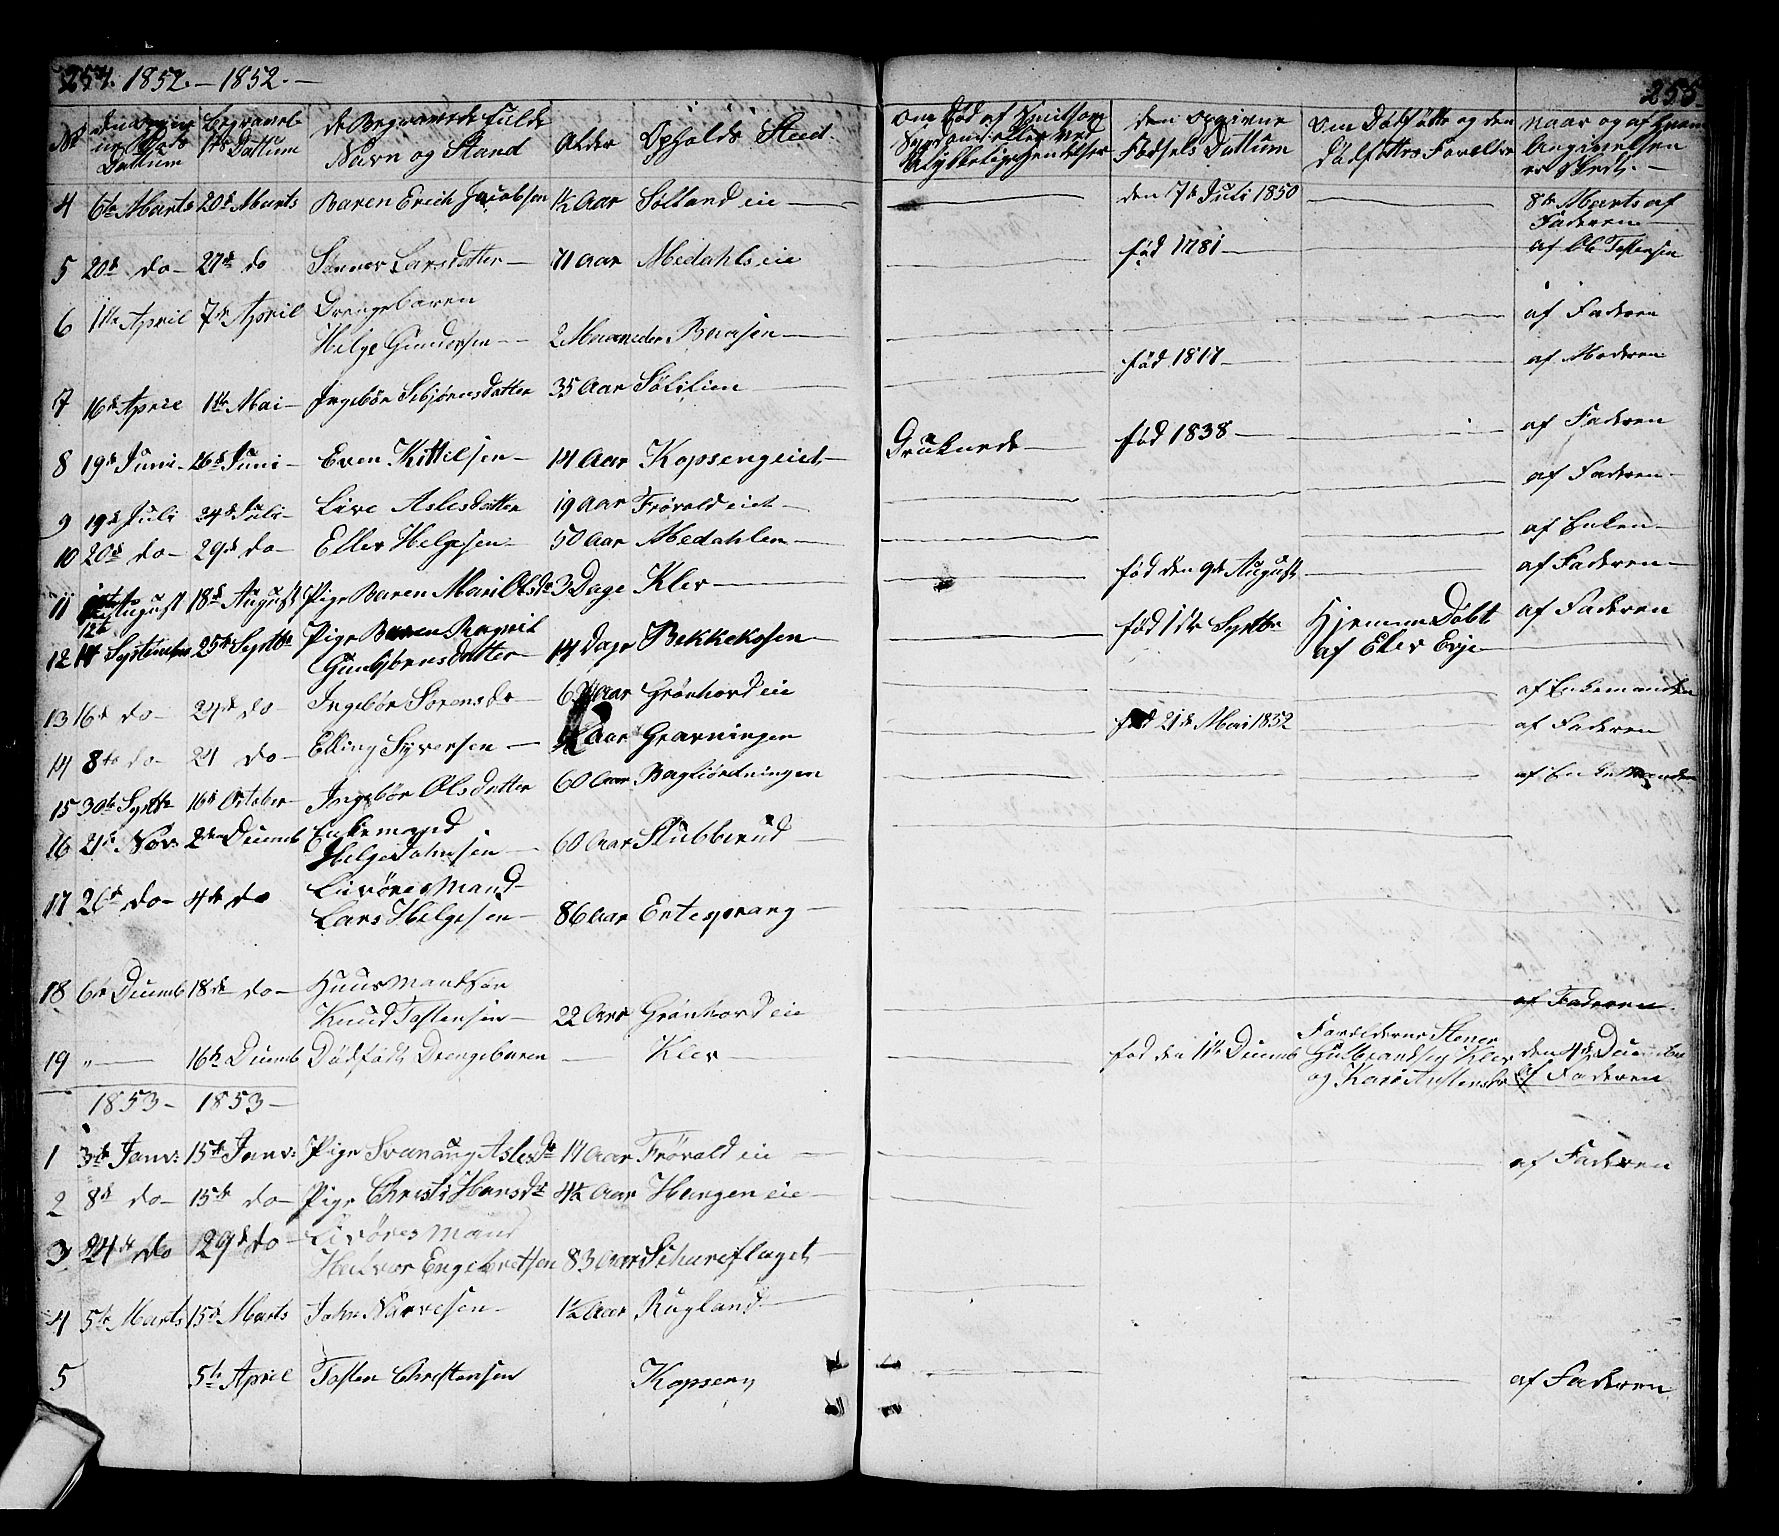 254. 1852. — 1852. —
255.
No | Døds Dattum | Begravels Dattum | de Begravede fulde Navn og Stand | Alder | Opholds Sted. | om Død af Smitsom Sygdom eller ved Ulykkelige hendelser | den opgivne Fødsels Dattum | om Dødfødte og den dødfødtes Forældre | naar og af hvem Angivelsen er skedt. —
4 | 6te Marts | 20de Marts | Baren Erich Jacobsen | 1½ Aar | Sølland eie | — | den 7de Juli 1850 | — | 8de Marts af Faderen
5 | 20de do — | 27de do | Larsdatter — | 71 Aar | Medahls eie | — | fød 1781 — | — | af Ole Tostensen
6 | 1ste April | 7de April | Drengebaren Helge Gundersen — | 2 Maaneder | — | — | — | af Faderen
7 | 16de April | 1ste Mai — | Ingebør Sebjørnsdatter | 35 Aar | Sølilien — | — | fød 1817 — | — | af Moderen
8 | 19de Juni — | 26de Juni — | Even Kittilsen — | 14 Aar | Kopsengeiet — | Druknede — | fød 1838 — | — | af Faderen
9 | 19de Juli | 24de Juli — | Live Aslesdatter | 19 Aar | Frøvold eiet — | — | — | af Faderen —
10 | 20de do — | 29de do — | Ellev Helgesen — | 50 Aar | Medahlen — | — | — | af Enken —
11 | August | 18de August | Pige Baren Mari Olsdr | 3 Dage | Klev — | — | fød den 9de August | — | af Faderen —
12 | 12te September | 25de Septbr | Pige Baren Ragnil Gunbjørnsdatter — | 14 Dage | Bekkekosen — | — | fød 1ste Septbr | Hjemme Døbt af Elev Evje — | af Faderen
13 | 16de do — | 24de do | Ingebør Sørensdr — | Aar | Grønhovd eie | — | — | af Enkemanden
14 | 8de do — | 21 do — | Elling Syversen — | Aar | Gravningen | — | fød 21de Mai 1852 | — | af Faderen
15 | 30te Septbr | 16de October — | Ingebør Olsdatter | 60 Aar | — | — | af Enkemanden
16 | 21de Nov: | 2den Decemb | Enkemand Helge Johnsen — | 60 Aar | Slubberud — | —
17 | 26de do — | 4de do | Livøres Mand — Lars Helgesen — | 86 Aar | Entesprang — | —
18 | 6te Decemb | 18de do — | Huusmandsøn Knud Tostensen — | 22 Aar | Grønhovd eie | — | af Faderen
19 | „ — | 16de Decemb | Dødfødt Drengebaren | — | Klev | — | fød den 1ste Decemb | Forælderne Stener Gulbrandsen Klev og Kari | den 4de December af Faderen
1853 — 1853 —
1 | 3de Janv: | 15de Janv: | Pige Svanaug Aslesdr | 17 Aar | Frøvold eie — | — | — | af Faderen
2 | 8de do — | 15de do — | Pige Christi Hansdr | 4½ Aar | Haugen eie — | —
3 | 24de do | 29de do — | Livøres Mand Halvor Engebretsen | 83 Aar | Skareflaget — | —
4 | 5te Marts | 15de Marts | John Narvesen — | 1½ Aar | Rugland — | —
5 | 5te April | Tosten Christensen | Kopseng | — | — | af Faderen